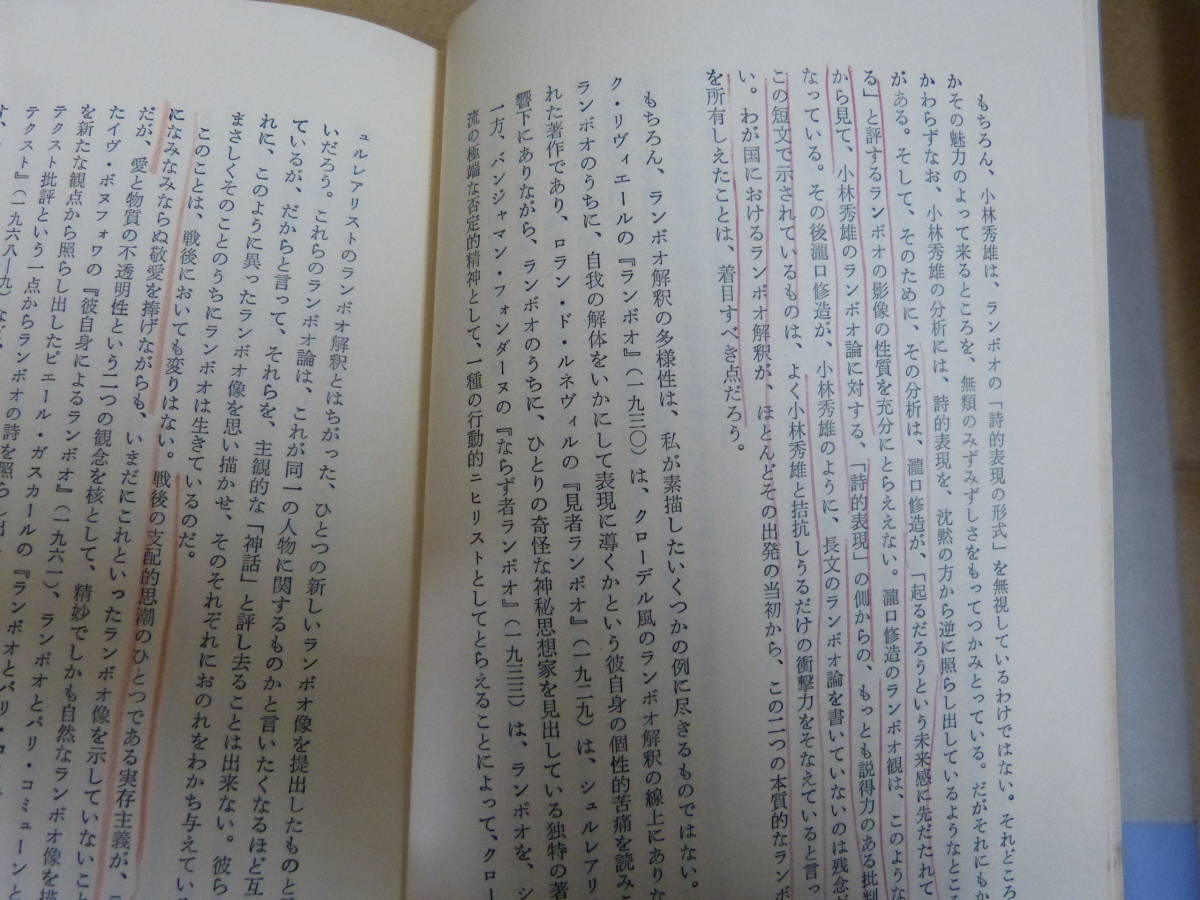 もちろん、小林秀雄は、ランボオの「詩的表現の形式」を無視しているわけではない。それどころ
かその魅力のよって来るところを、無類のみずみずしさをもってつかみとっている。だがそれにもか
かわらずなお、小林秀雄の分析には、詩的表現を、沈黙の方から逆に照らし出しているようなところ
がある。そして、そのために、その分析は、瀧口修造が、「起るだろうという未来感に先だたれて
る」と評するランボオの影像の性質を充分にとらええない。瀧口修造のランボオ観は、このような
から見て、小林秀雄のランボオ論に対する、「詩的表現」の側からの、もっとも説得力のある批判
なっている。その後瀧口修造が、小林秀雄のように、長文のランボオ論を書いていないのは残念だ
この短文で示されているものは、よく小林秀雄と拮抗しうるだけの衝撃力をそなえていると言っ
い。わが国におけるランボオ解釈が、ほとんどその出発の当初から、この二つの本質的なランボ
を所有しえたことは、着目すべき点だろう。
もちろん、ランボオ解釈の多様性は、私が素描したいくつかの例に尽きるものではない。
ク・リヴィエールの『ランボオ』(一九三〇)は、クローデル風のランボオ解釈の線上にありな
ランボオのうちに、自我の解体をいかにして表現に導くかという彼自身の個性的苦痛を読みこ
れた著作であり、ロラン・ド・ルネヴィルの『見者ランボオ』(一九二九)は、シュルレアリ
響下にありながら、ランボオのうちに、ひとりの奇怪な神秘思想家を見出している独特の著
一方、バンジャマン・フォンダーヌの『ならず者ランボオ』(一九三三)は、ランボオを、シ
流の極端な否定的精神として、一種の行動的ニヒリストとしてとらえることによって、クロー
ュルレアリストのランボオ解釈とはちがった、ひとつの新しいランボオ像を提出したものと
いだろう。これらのランボオ論は、これが同一の人物に関するものかと言いたくなるほど互
ているが、だからと言って、それらを、主観的な「神話」と評し去ることは出来ない。彼ら
れに、このように異ったランボオ像を思い描かせ、そのそれぞれにおのれをわかち与えてい
まさしくそのことのうちにランボオは生きているのだ。
このことは、戦後においても変りはない。戦後の支配的思潮のひとつである実存主義が、
になみなみならぬ敬愛を捧げながらも、いまだにこれといったランボオ像を示していないこ
だが、愛と物質の不透明性という二つの観念を核として、精妙でしかも自然なランボオ像を
たイヴ・ボヌフォワの『彼自身によるランボオ』(一九六一)、ランボオとパリ・コミューンと
を新たな観点から照らし出したピエール・ガスカールの『ランボオとパリ・コ
テクスト批評という一点からランボオの詩を照らし出
テクスト』(一九六八―九)など、